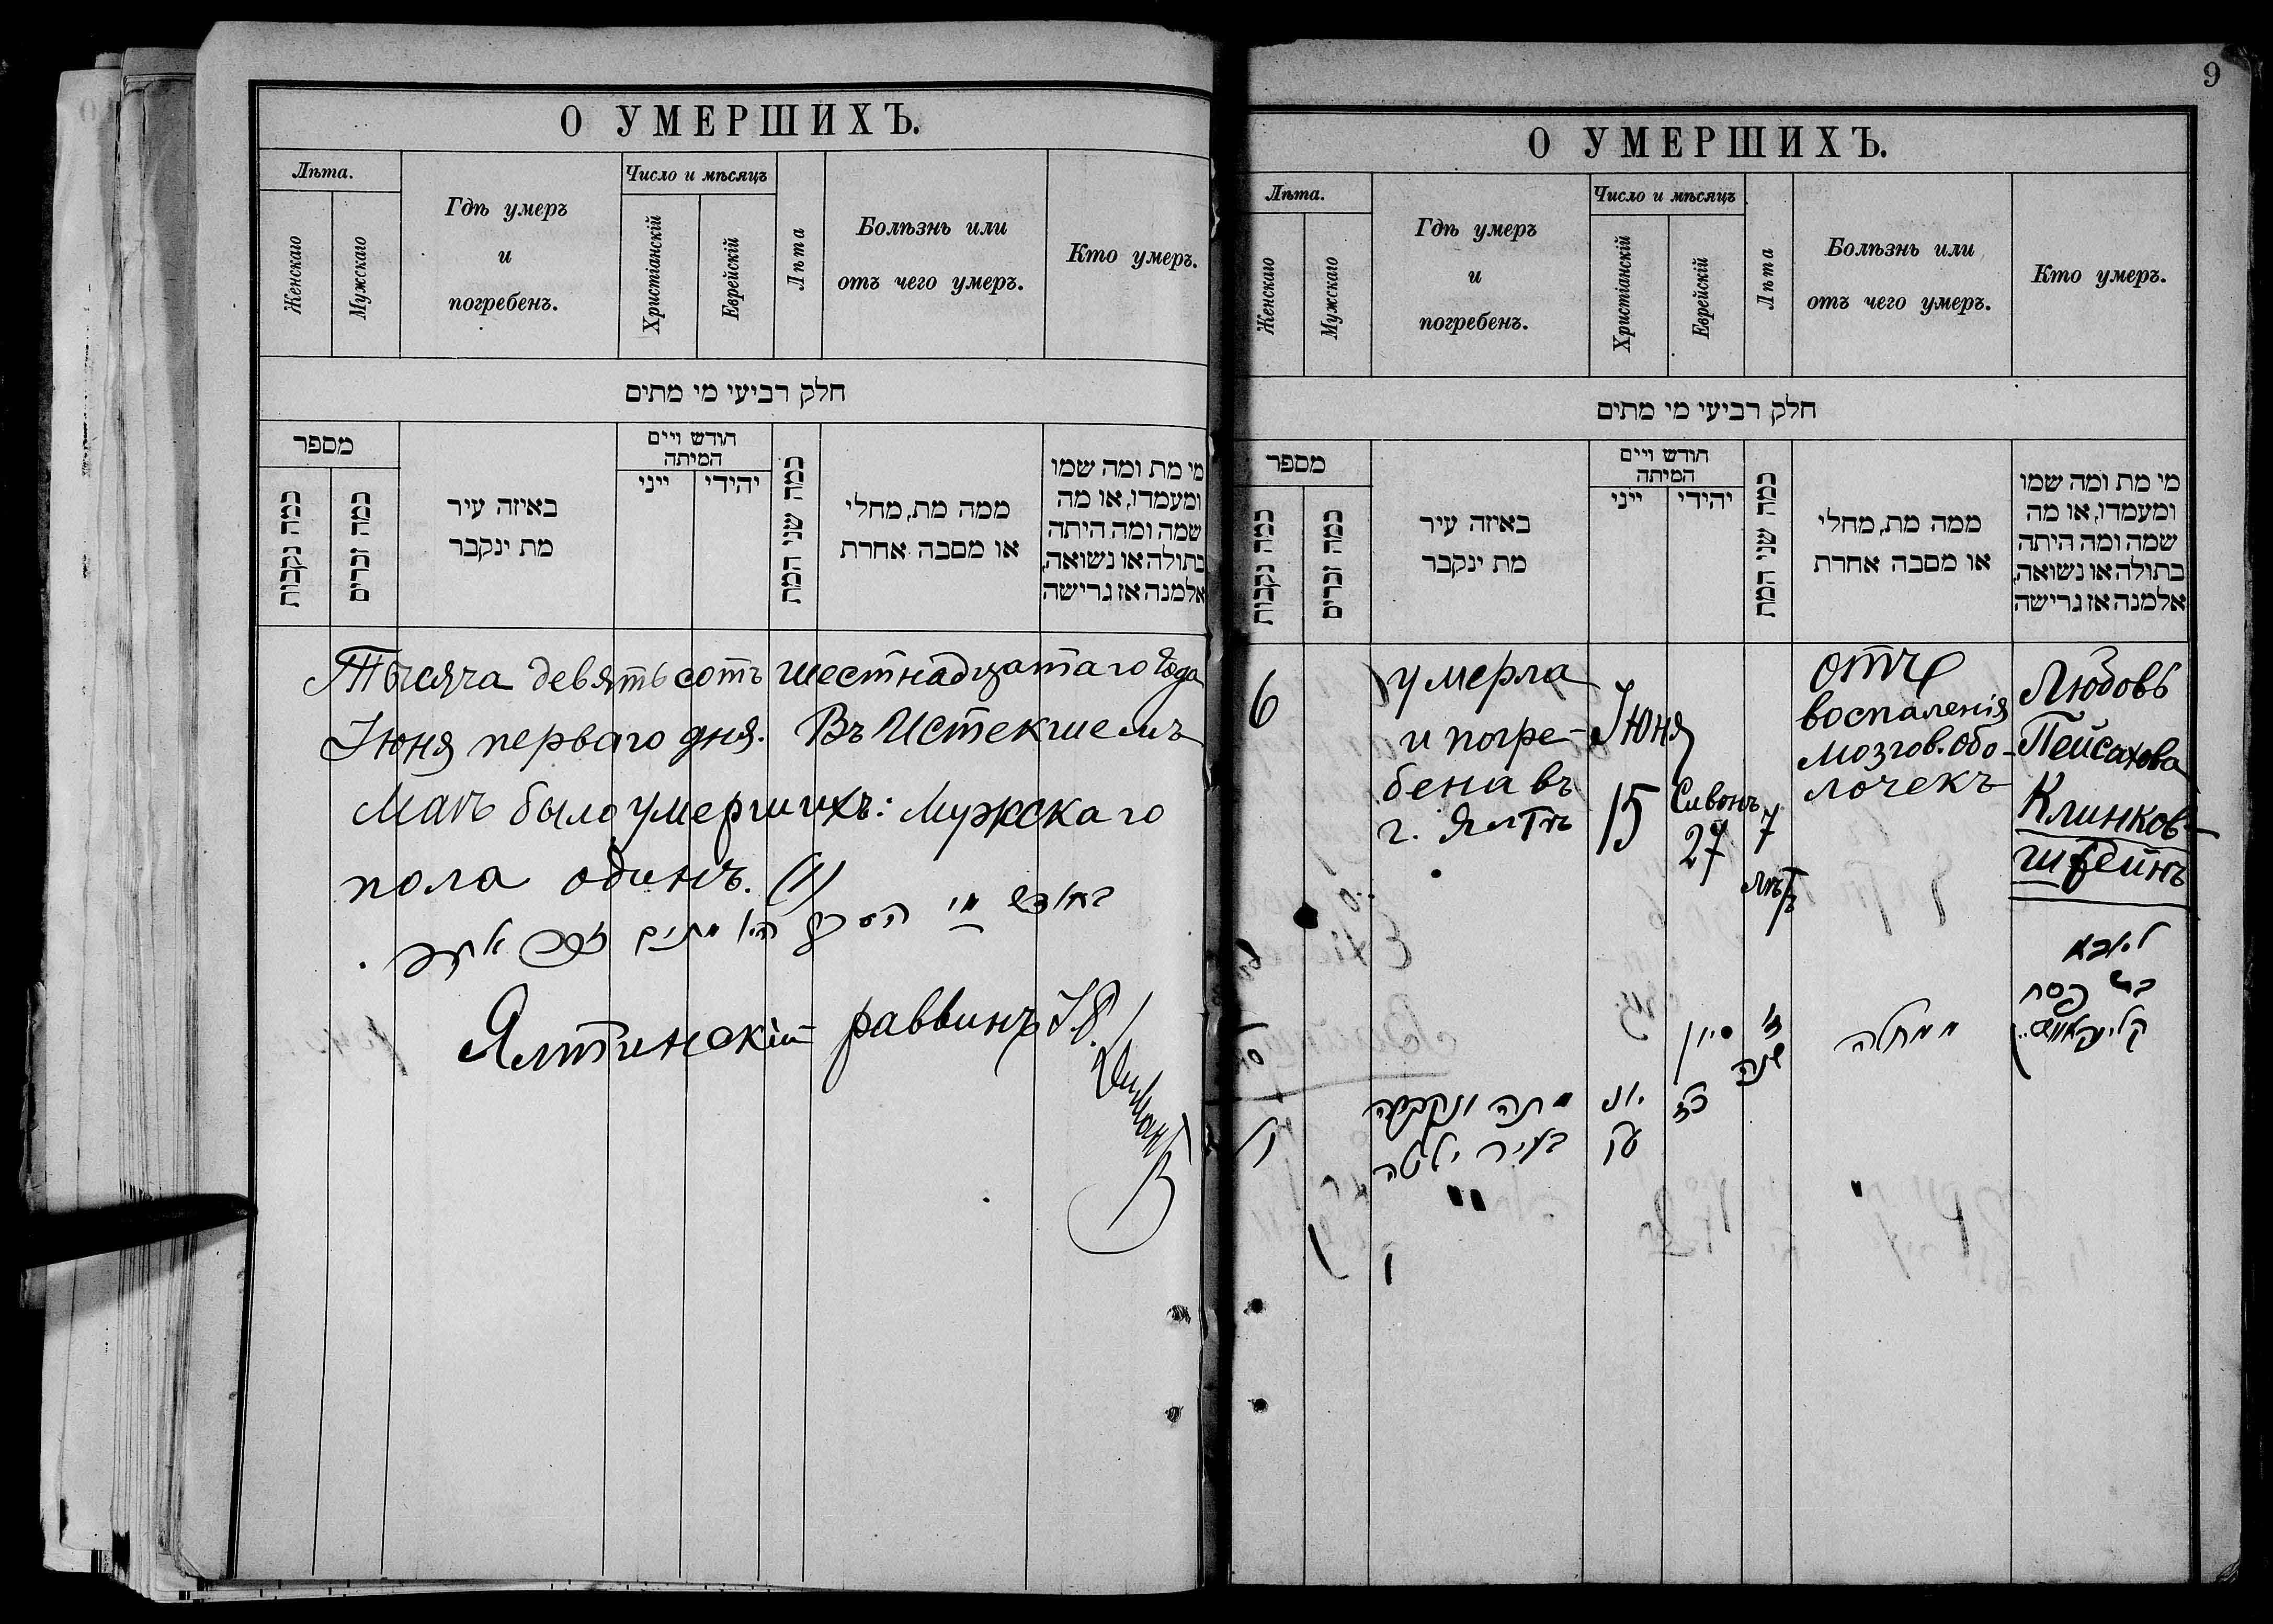 О УМЕРШИХЪ.
Лѣта.
Женскаго
Мужскаго
Гдѣ умеръ
и
погребенъ.
Число и мѣсяцъ
Христіанскій
Еврейскій
Лѣта
Болѣзнь или
отъ чего умеръ.
Кто умеръ.
חלק רביעי מי מתים
מספר
כמה נקבות
כמה זכרים
באיזה עיר
מת ינקבר
חודש ויים
המיתה
ייני
יהידי
כמה שני המת
ממה מת, מחלי
או מסבה אחרת
מי מת ומה שמו
ומעמדו, או מה
שמה ומה היתה
בתולה או נשואה,
אלמנה אז גרישה
Тысяча девятьсотъ шестнадцатаго года
Іюня перваго дня. Въ Истекшемъ
Маѣ было умершихъ: Мужскаго
пола одинъ. (1)
בחודש מי מתים זכר אחד.
Ялтинскій раввинъ
9
О УМЕРШИХЪ.
Лѣта.
Женскаго
Мужскаго
Гдѣ умеръ
и
погребенъ.
Число и мѣсяцъ
Христіанскій
Еврейскій
Лѣта
Болѣзнь или
отъ чего умеръ.
Кто умеръ.
חלק רביעי מי מתים
מספר
כמה נקבות
כמה זכרים
באיזה עיר
מת ינקבר
חודש ויים
המיתה
ייני
יהידי
כמה שני המת
ממה מת, מחלי
או מסבה אחרת
מי מת ומה שמו
ומעמדו, או מה
שמה ומה היתה
בתולה או נשואה,
אלמנה אז גרישה
6
умерла
и погре-
бена въ
г. Ялтѣ
Іюня
15
Сивонъ
27
7
лѣтъ
отъ
воспаленія
мозгов. обо-
лочекъ
Любовь
Пейсахова
Клинков-
штейнъ
ליובא
בת פסח
ממחלה
ז'
שנה
סיון
כז
יוני
טו
מתה ונקברה
בעיר ילטה
ו